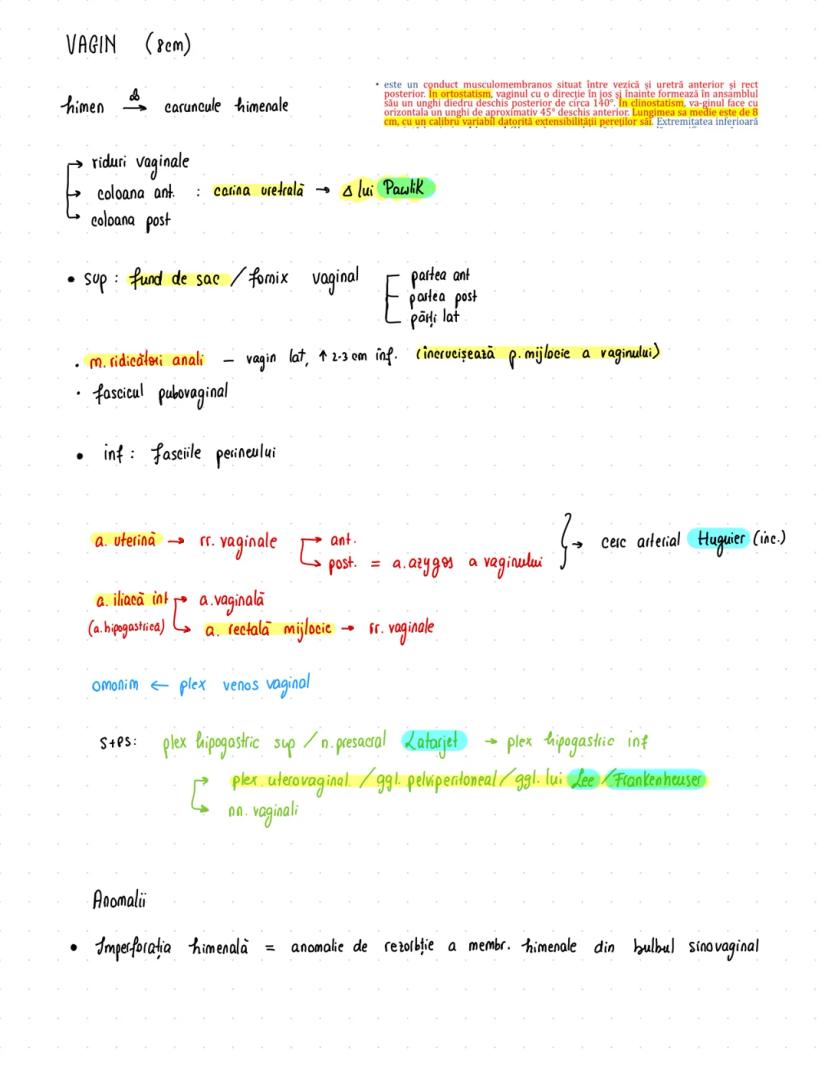 VAGIN (8cm)
• este un conduct musculomembranos situat între vezică și uretră anterior și rect
posterior. În ortostatism, vaginul cu o direcție în jos și înainte formează în ansamblul
său un unghi diedru deschis posterior de circa 140°. În clinostatism, va-ginul face cu
orizontala un unghi de aproximativ 45° deschis anterior. Lungimea sa medie este de 8
cm, cu un calibru variabil datorită extensibilității pereților săi. Extremitatea inferioară
himen → caruncule himenale
→ riduri vaginale
→ coloana ant. : carina uretrală → Δ lui Pawlik
→ coloana post
• sup : fund de sac / fornix vaginal
partea ant
partea post
părți lat
• m. ridicători anali – vagin lat, ↑ 2-3 cm inf. (încrucișează p. mijlocie a vaginului)
• fascicul pubovaginal
• inf : fasciile perineului
a. uterină → rr. vaginale → ant.
→ post. = a. azygos a vaginului
} → cerc arterial Huguier (inc.)
a. iliacă int → a. vaginală
(a. hipogastrică) → a. rectală mijlocie → rr. vaginale
omonim ← plex venos vaginal
S+PS: plex hipogastric sup / n. presacral Latarjet → plex hipogastric inf
→ plex. uterovaginal / ggl. pelviperitoneal / ggl. lui Lee / Frankenheuser
→ nn. vaginali
Anomalii
• Imperforația himenală = anomalie de rezorbție a membr. himenale din bulbul sinovaginal